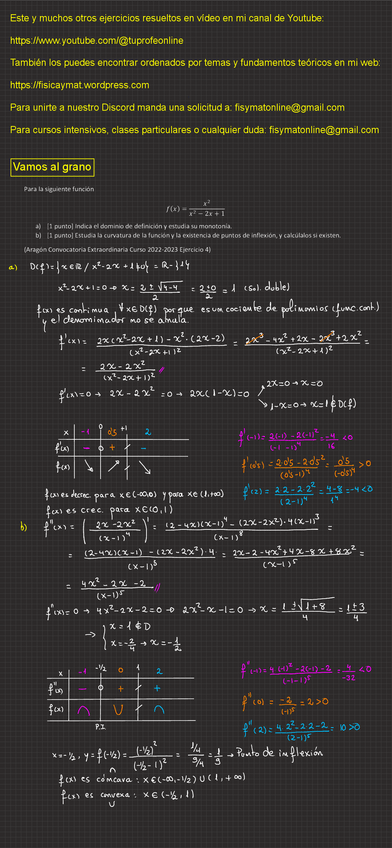 Este y muchos otros ejercicios resueltos en vídeo en mi canal de Youtube:
https://www.youtube.com/@tuprofeonline
También los puedes encontrar ordenados por temas y fundamentos teóricos en mi web:
https://fisicaymat.wordpress.com
Para unirte a nuestro Discord manda una solicitud a: fisymatonline@gmail.com
Para cursos intensivos, clases particulares o cualquier duda: fisymatonline@gmail.com
Vamos al grano
Para la siguiente función
f(x) = x²/(x² − 2x + 1)
a) [1 punto] Indica el dominio de definición y estudia su monotonía.
b) [1 punto] Estudia la curvatura de la función y la existencia de puntos de inflexión, y calcúlalos si existen.
(Aragón Convocatoria Extraordinaria Curso 2022-2023 Ejercicio 4)
a) D(f) = {x ∈ ℝ / x² - 2x + 1 ≠ 0} = ℝ - {1}
x² - 2x + 1 = 0 → x = (2 ± √(4-4))/2 = (2 ± 0)/2 = 1 (sol. doble)
f(x) es continua ∀ x ∈ D(f) porque es un cociente de polinomios (func. cont.)
y el denominador no se anula.
f'(x) = (2x(x² - 2x + 1) - x² · (2x - 2))/(x² - 2x + 1)² = (2x³ - 4x² + 2x - 2x³ + 2x²)/(x² - 2x + 1)² =
= (2x - 2x²)/(x² - 2x + 1)²
f'(x) = 0 → 2x - 2x² = 0 → 2x(1 - x) = 0
2x = 0 → x = 0
1 - x = 0 → x = 1 ∉ D(f)
x -1 0 0'5 +1 2
f'(x) - + -
f(x) ↘ ↗ ↘
f'(-1) = (2(-1) - 2(-1)²)/(-1-1)⁴ = -4/16 < 0
f'(0'5) = (2·0'5 - 2·0'5²)/(0'5-1)⁴ = 0'5/(-0'5)⁴ > 0
f'(2) = (2·2 - 2·2²)/(2-1)⁴ = (4-8)/1⁴ = -4 < 0
f(x) es decrec. para x ∈ (-∞,0) y para x ∈ (1,+∞)
f(x) es crec. para x ∈ (0,1)
b) f''(x) = ((2x - 2x²)/(x-1)⁴)' = ((2-4x)(x-1)⁴ - (2x-2x²)·4(x-1)³)/(x-1)⁸ =
= ((2-4x)(x-1) - (2x-2x²)·4)/(x-1)⁵ = (2x - 2 - 4x² + 4x - 8x + 8x²)/(x-1)⁵ =
= (4x² - 2x - 2)/(x-1)⁵
f''(x) = 0 → 4x² - 2x - 2 = 0 → 2x² - x - 1 = 0 → x = (1 ± √(1+8))/4 = (1 ± 3)/4
→ { x = 1 ∉ D
x = -2/4 → x = -1/2
x -1 -1/2 0 1 2
f''(x) - + +
f(x) ∩ ∪ ∩
P.I.
f''(-1) = (4(-1)² - 2(-1) - 2)/(-1-1)⁵ = 4/-32 < 0
f''(0) = -2/(-1)⁵ = 2 > 0
f''(2) = (4·2² - 2·2 - 2)/(2-1)⁵ = 10 > 0
x = -1/2, y = f(-1/2) = (-1/2)²/(-1/2 - 1)² = (1/4)/(9/4) = 1/9 → Punto de inflexión
f(x) es cóncava: x ∈ (-∞,-1/2) ∪ (1,+∞)
f(x) es convexa: x ∈ (-1/2, 1)